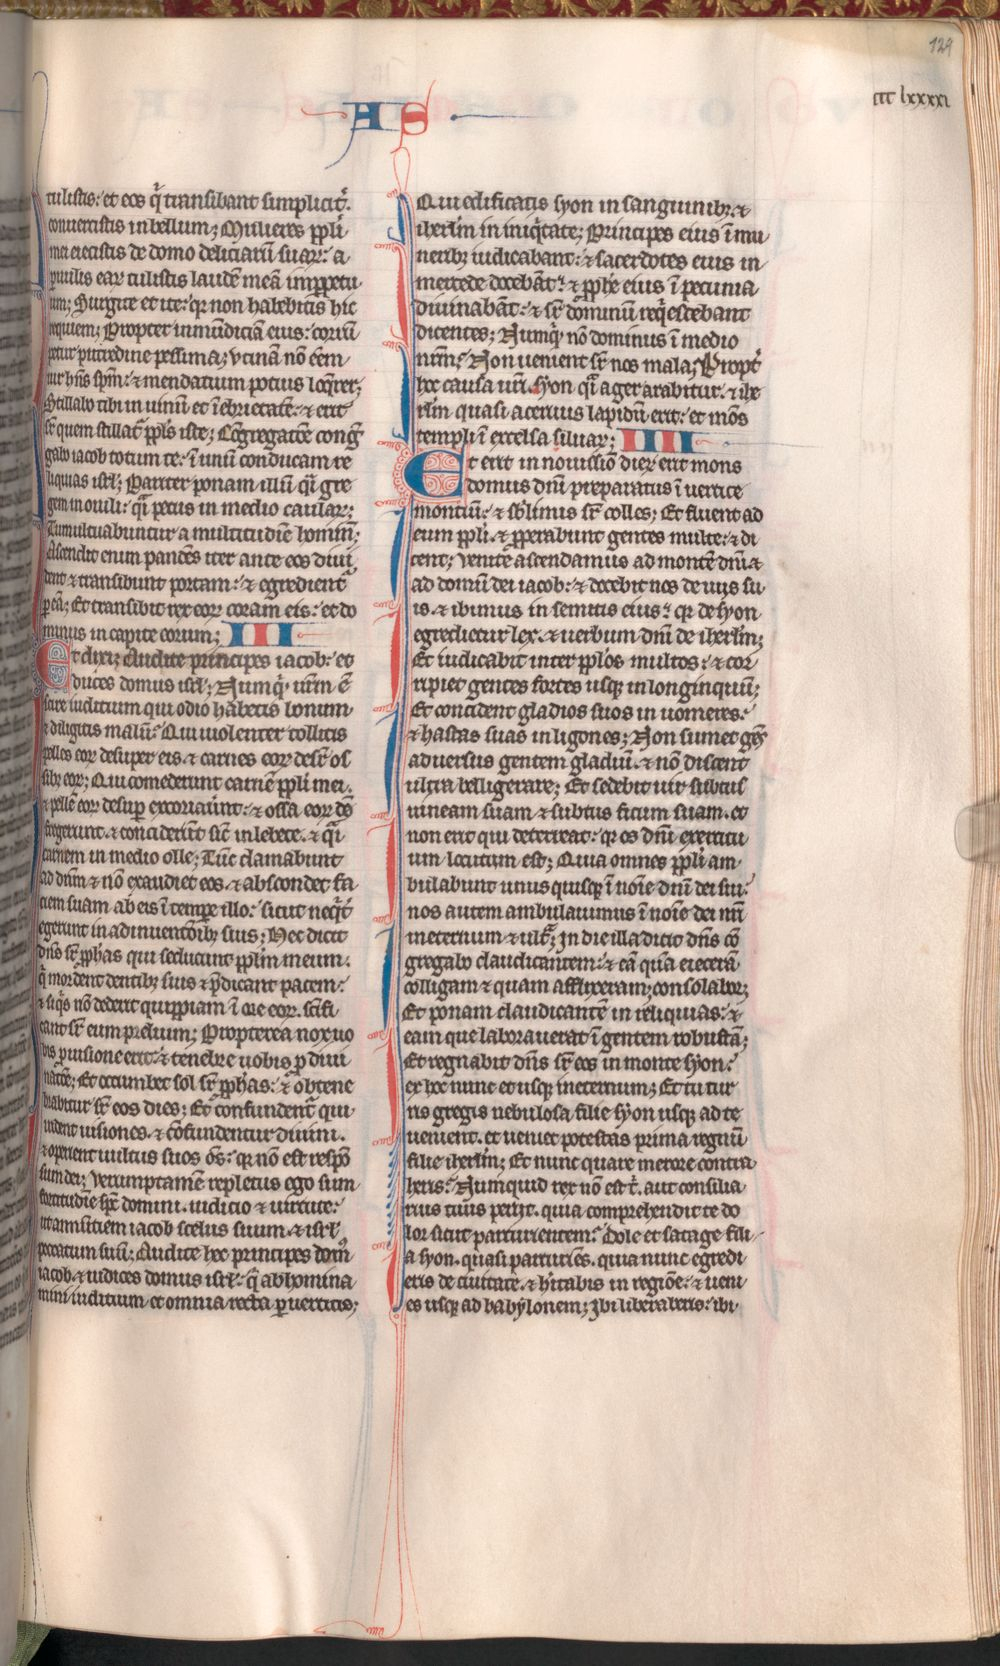 129
ccc lxxxxi
AS
tulistis: et eos q̄ transibant simplicit̄.
conuertistis in bellum; Mulieres ppl̄i
mei eiecistis de domo deliciarū suaꝝ: a
paruulis eaꝝ tulistis laudē meā inppetu
um; Surgite et ite: qꝛ non habebitis hic
requiem; Propter inmūdiciam eius: corrū
petur putredine pessima; vtinā nō eēm
uir hn̄s spm̄: ⁊ mendatium potius loq̄rer;
Stillabo tibi in uinū et ī ebrietatē: ⁊ erit
sr̄ quem stillat̄ ppl̄s iste; Cōgregatōe congr̄
gabo iacob totum te: ī unū conducam re
liquias isrl̄; Pariter ponam illū q̄i gre
gem in ouili: q̄i pecus in medio caulaꝝ;
Tumultuabuntur a multitudīe hominū;
Ascendit enim pandēs iter ante eos diui
dent ⁊ transibunt portam: ⁊ egredient̄
p eā; Et transibit rex eoꝝ coram eis: et do
minus in capite eorum; III
Et dixi; Audite principes iacob: et
duces domus isrl̄; Numq̄d urm̄ ē
scire iuditium qui odio habetis bonum
⁊ diligitis malū: Qui uiolenter tollitis
pelles eoꝝ desuper eis ⁊ carnes eoꝝ desr̄ os
sibꝫ eoꝝ; Qui comederunt carnē ppl̄i mei.
⁊ pellē eoꝝ desup excoriauīnt: ⁊ ossa eoꝝ cō
fregerunt ⁊ conciderūt sic̄ in lebete. ⁊ q̄i
carnem in medio olle; Tūc clamabunt
ad dn̄m ⁊ nō exaudiet eos ⁊ abscondet fa
ciem suam ab eis ī tempe illo: sicut neq̄t̄
egerunt in adinuentōibꝫ suis; Hec dicit
dn̄s sr̄ pphas qui seducunt pplm̄ meum:
q̄ mordent dentibꝫ suis ⁊ p̄dicant pacem:
⁊ siq̄s nō dederit quippiam ī ore eoꝝ. sc̄ifi
cant sr̄ eum prelium; Propterea nox uo
bis p uisione erit: ⁊ tenebre uobis p diui
natōe; Et occumbet sol sr̄ pphas: ⁊ obtene
brabitur sr̄ eos dies; Et confundent̄ qui
uident uisiones. ⁊ cōfundentur diuini.
⁊ operient uultus suos ōs: qꝛ nō est respō
sum dei; Verumptamē repletus ego sum
fortitudīe spc̄ domini. iudicio ⁊ uirtute:
ut annūtiem iacob scelus suum ⁊ isrl̄
peccatum suū; Audite hec principes dom̄
iacob ⁊ iudices domus isrl̄: q̄ abhomina
mini iuditium et omnia recta puertitis;
Qui edificatis syon in sanguinibꝫ: ⁊
iherlm̄ in iniq̄tate; Principes eius ī mu
neribꝫ iudicabant: ⁊ sacerdotes eius in
mercede docebāt: ⁊ pphe eius ī pecunia
diuinabāt: ⁊ sr̄ dominū req̄escebant
dicentes; Numq̄d nō dominus ī medio
nrm̄: Non uenient sr̄ nos mala; Propt̄
hoc causa urī. syon q̄i ager arabitur: ⁊ ihe
rlm̄ quasi aceruus lapidū erit: et mōs
templi ī excelsa siluaꝝ; IIII
Et erit in nouissīo dieꝝ erit mons
domus dn̄i preparatus ī uertice
montiū: ⁊ sb̄limis sr̄ colles; Et fluent ad
eum ppl̄i. ⁊ pperabunt gentes multe: ⁊ di
cent; Venite ascendamus ad montē dn̄i ⁊
ad domū dei iacob: ⁊ docebit nos de uijs su
is. ⁊ ibimus in semitis eius: qꝛ de syon
egredietur lex. ⁊ uerbum dn̄i de iherlm̄;
Et iudicabit inter ppl̄os multos: ⁊ cor
ripiet gentes fortes usqꝫ in longinquū;
Et concident gladios suos in uomeres:
⁊ hastas suas in ligones; Non sumet gēs
aduersus gentem gladiū. ⁊ nō discent
ultra belligerare; Et sedebit uir subtus
uineam suam ⁊ subtus ficum suam. et
non erit qui deterreat: qꝛ os dn̄i exercitu
um locutum est; Quia omnes ppl̄i am
bulabunt unus quisqꝫ ī noīe dn̄i dei sui:
nos autem ambulauimus ī noīe dei nr̄i
ineternum ⁊ ult̄; In die illa dicit dn̄s cō
gregabo claudicantem: ⁊ eā quā eiecerā
colligam ⁊ quam afflixeram; consolabor;
Et ponam claudicantē in reliquias: ⁊
eam que laborauerat ī gentem robustā;
Et regnabit dn̄s sr̄ eos in monte syon:
ex hoc nunc et usqꝫ ineternum; Et tu tur
ris gregis nebulosa filie syon usqꝫ ad te
uenient. et ueniet potestas prima regnū
filie iherlm̄; Et nunc quare merore contra
heris: Numquid rex nō est t̄. aut consilia
rius tuus periit. quia comprehendit te do
lor sicut parturientem: Dole et satage fili
a syon. quasi parturīēs. quia nunc egredi
eris de ciuitate. ⁊ hītabis in regiōe: ⁊ ueni
es usqꝫ ad babylonem; Ibi liberaberis: ibi